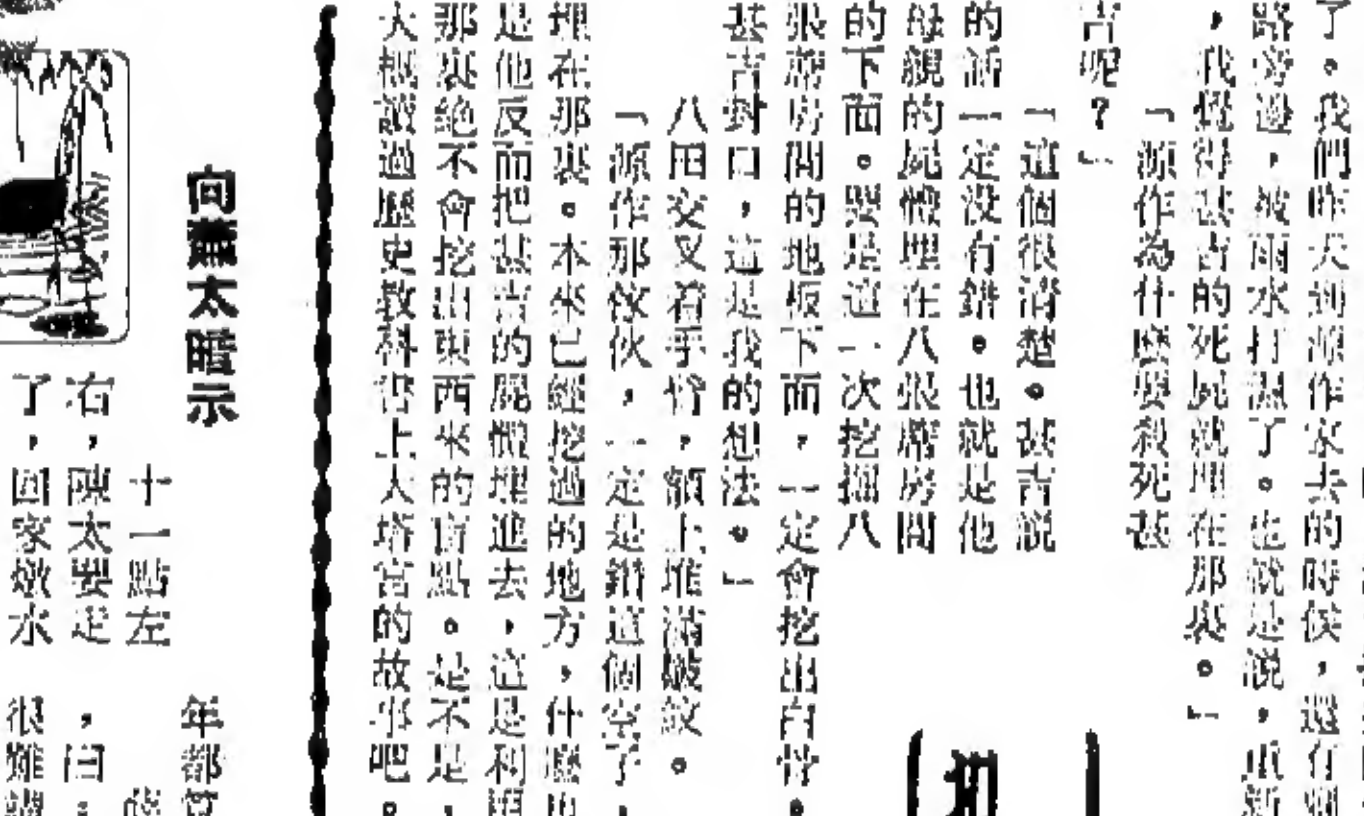 了。我們昨天到源作家去的時候,還有個
路旁邊,被雨水打濕了。也就是説,重新
,我覺得甚吉的死屍就埋在那裏。」
「源作為什麼要殺死甚
吉呢?」
「這個很清楚。甚吉説
的話一定没有錯。也就是他
母親的屍體埋在八張席房間
的下面。要是這一次挖掘八
張席房間的地板下面,一定會挖出白骨。
甚吉對口,這是我的想法。」
八田交叉着手臂,額上堆滿皺紋。
「源作那傢伙,一定是鑽這個空子,
埋在那裏。本來已經挖過的地方,什麼也
是他反而把甚吉的屍體埋進去,這是利用
那裏絶不會挖出東西來的盲點。是不是,
大概讀過歷史教科書上大塔宮的故事吧。
向蕭太暗示
十一點左
右,陳太要走
了,回家燉水
年都
,曰
很難